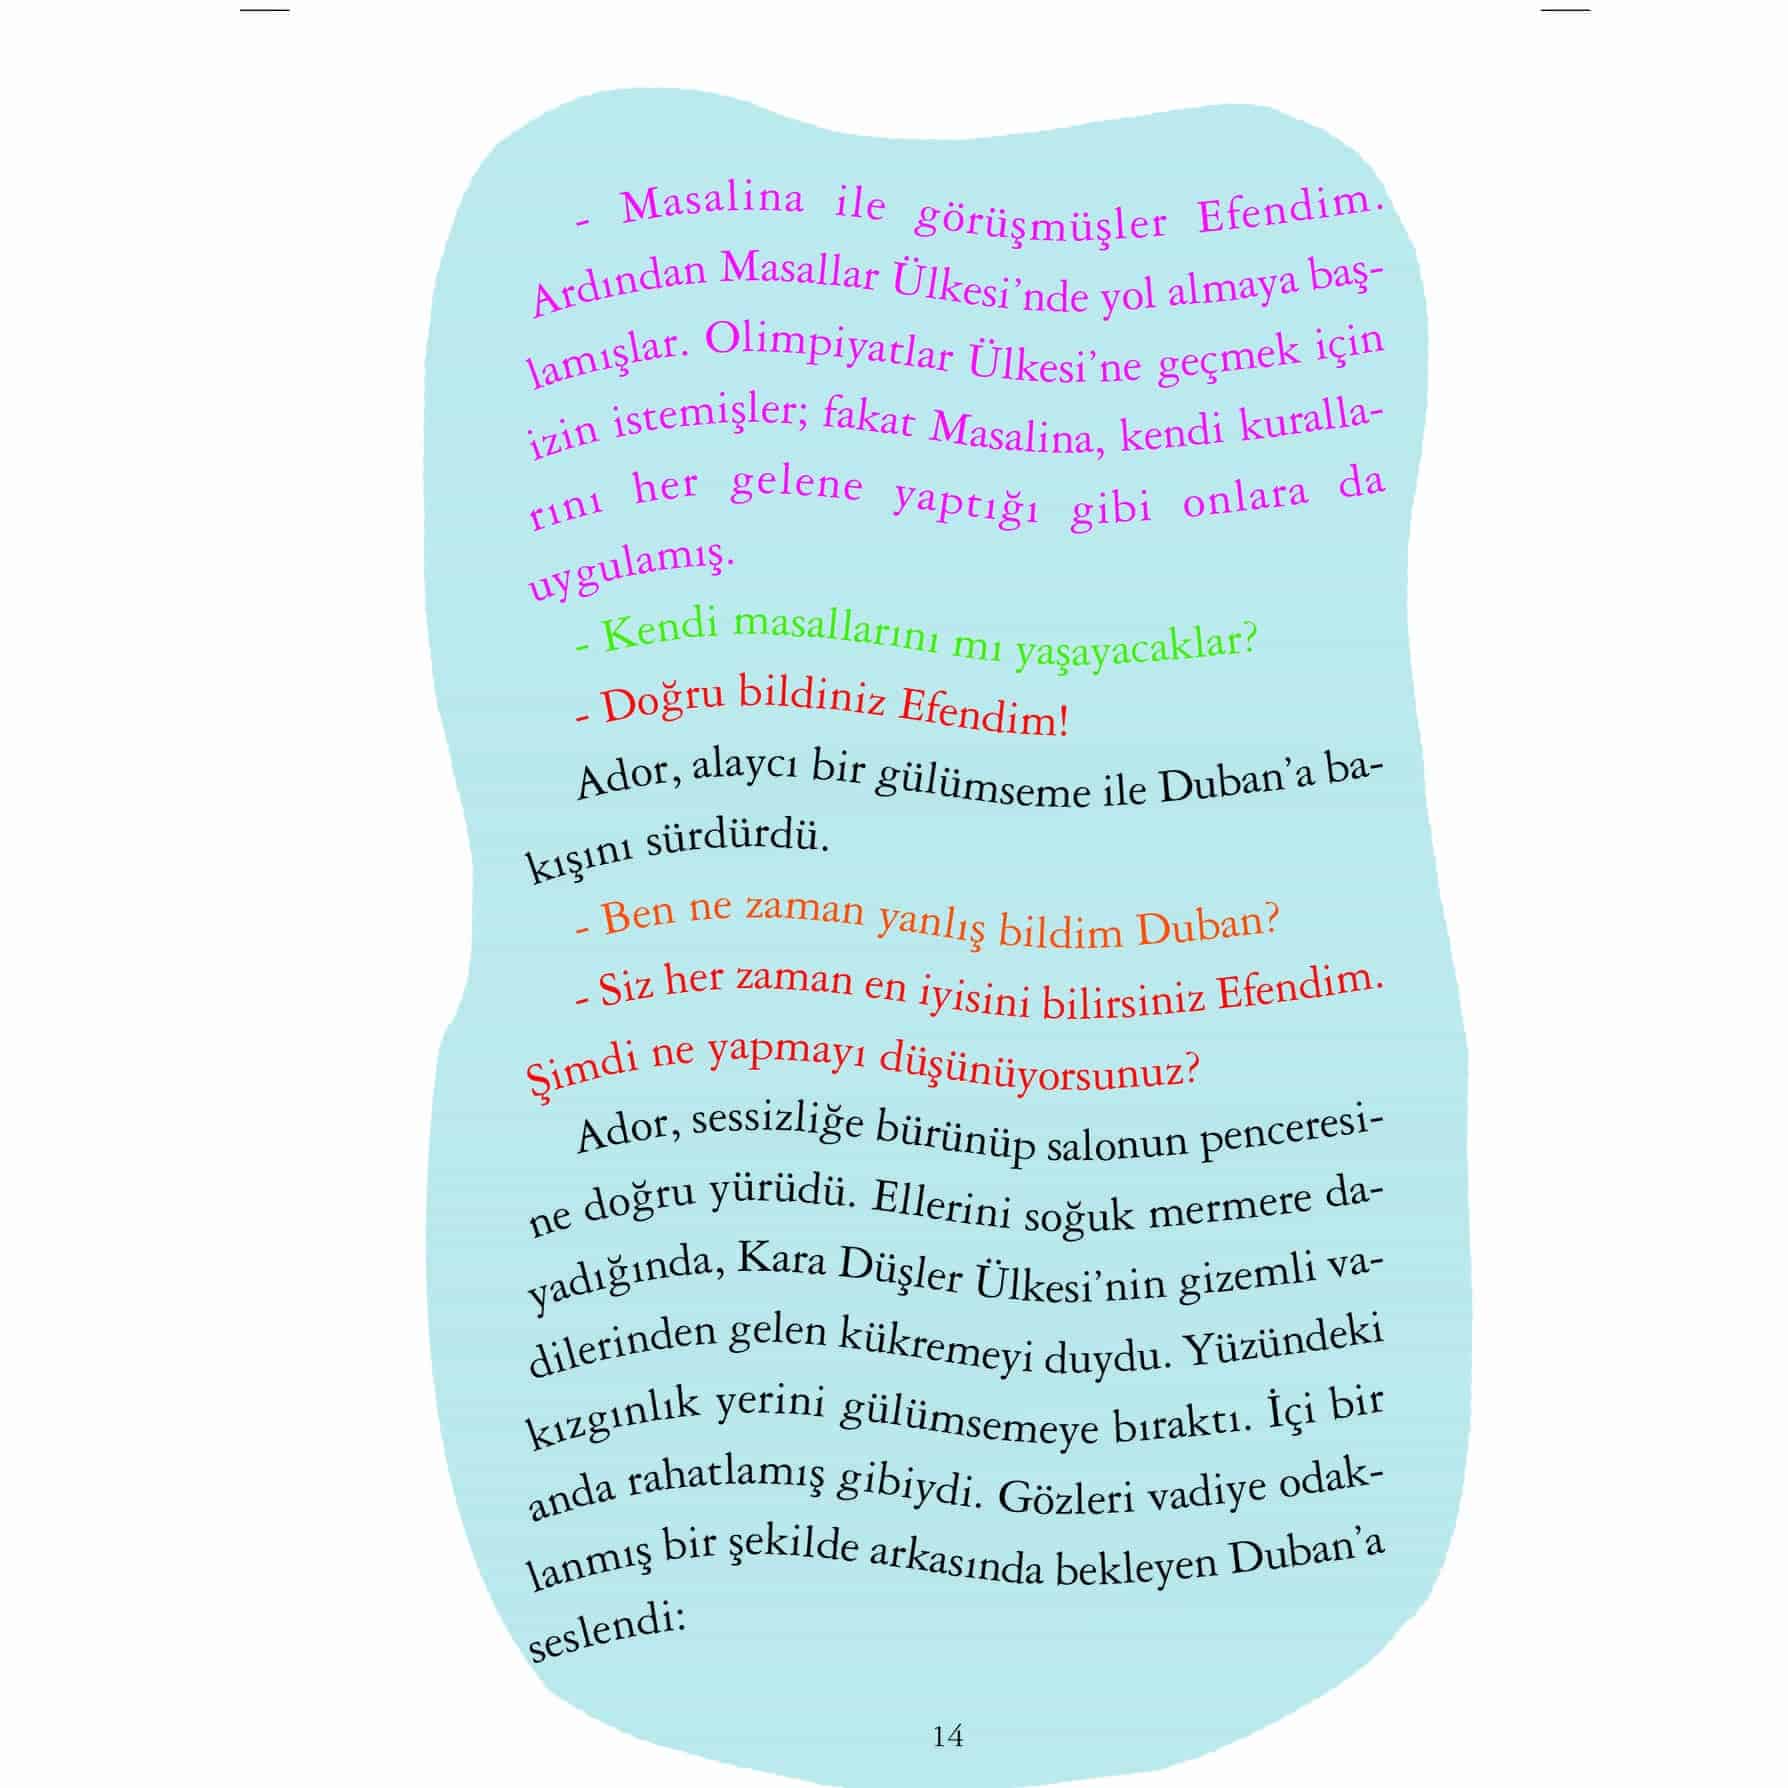 - Masalina ile görüşmüşler Efendim.
Ardından Masallar Ülkesi’nde yol almaya baş-
lamışlar. Olimpiyatlar Ülkesi’ne geçmek için
izin istemişler; fakat Masalina, kendi kuralla-
rını her gelene yaptığı gibi onlara da
uygulamış.
- Kendi masallarını mı yaşayacaklar?
- Doğru bildiniz Efendim!
Ador, alaycı bir gülümseme ile Duban’a ba-
kışını sürdürdü.
- Ben ne zaman yanlış bildim Duban?
- Siz her zaman en iyisini bilirsiniz Efendim.
Şimdi ne yapmayı düşünüyorsunuz?
Ador, sessizliğe bürünüp salonun penceresi-
ne doğru yürüdü. Ellerini soğuk mermere da-
yadığında, Kara Düşler Ülkesi’nin gizemli va-
dilerinden gelen kükremeyi duydu. Yüzündeki
kızgınlık yerini gülümsemeye bıraktı. İçi bir
anda rahatlamış gibiydi. Gözleri vadiye odak-
lanmış bir şekilde arkasında bekleyen Duban’a
seslendi:
14